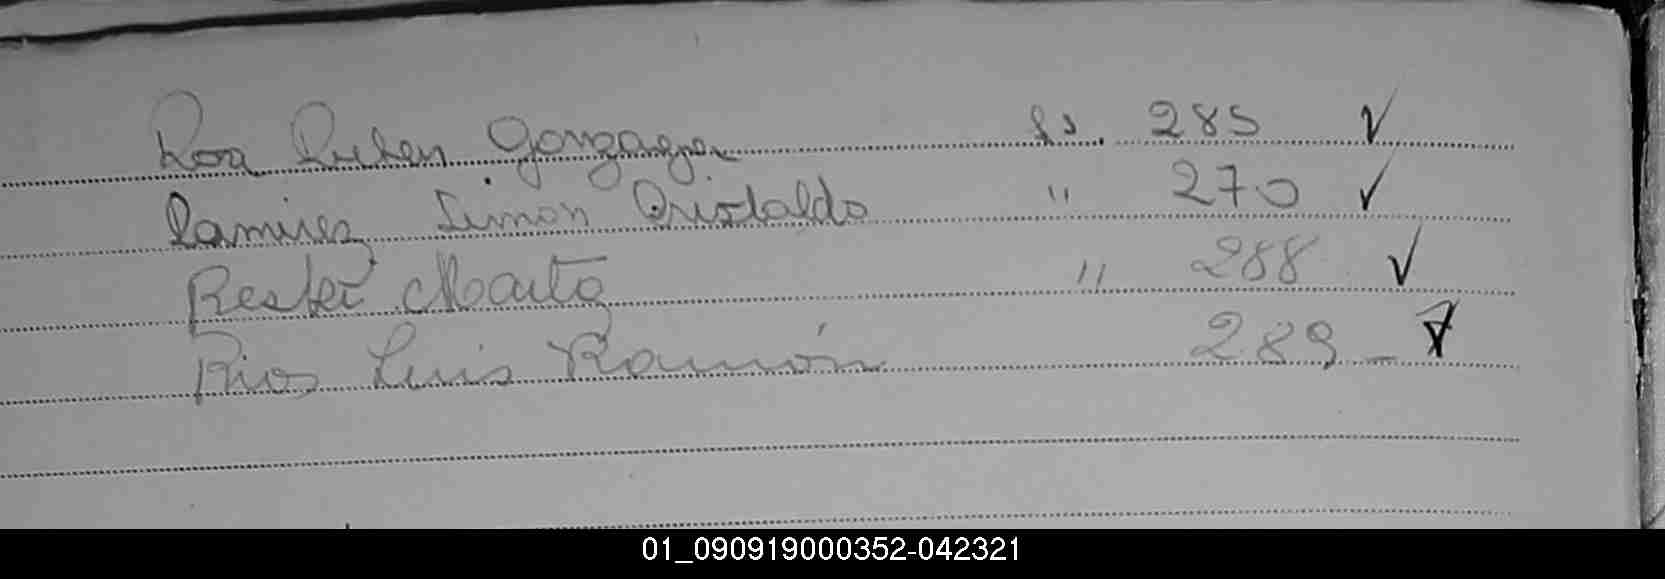 Roa Ruben Gonzaga fs. 285 ✓
Ramirez Simon Cristaldo " 270 ✓
Reski Marta " 288 ✓
Rios Luis Ramón 289 -
01_090919000352-042321